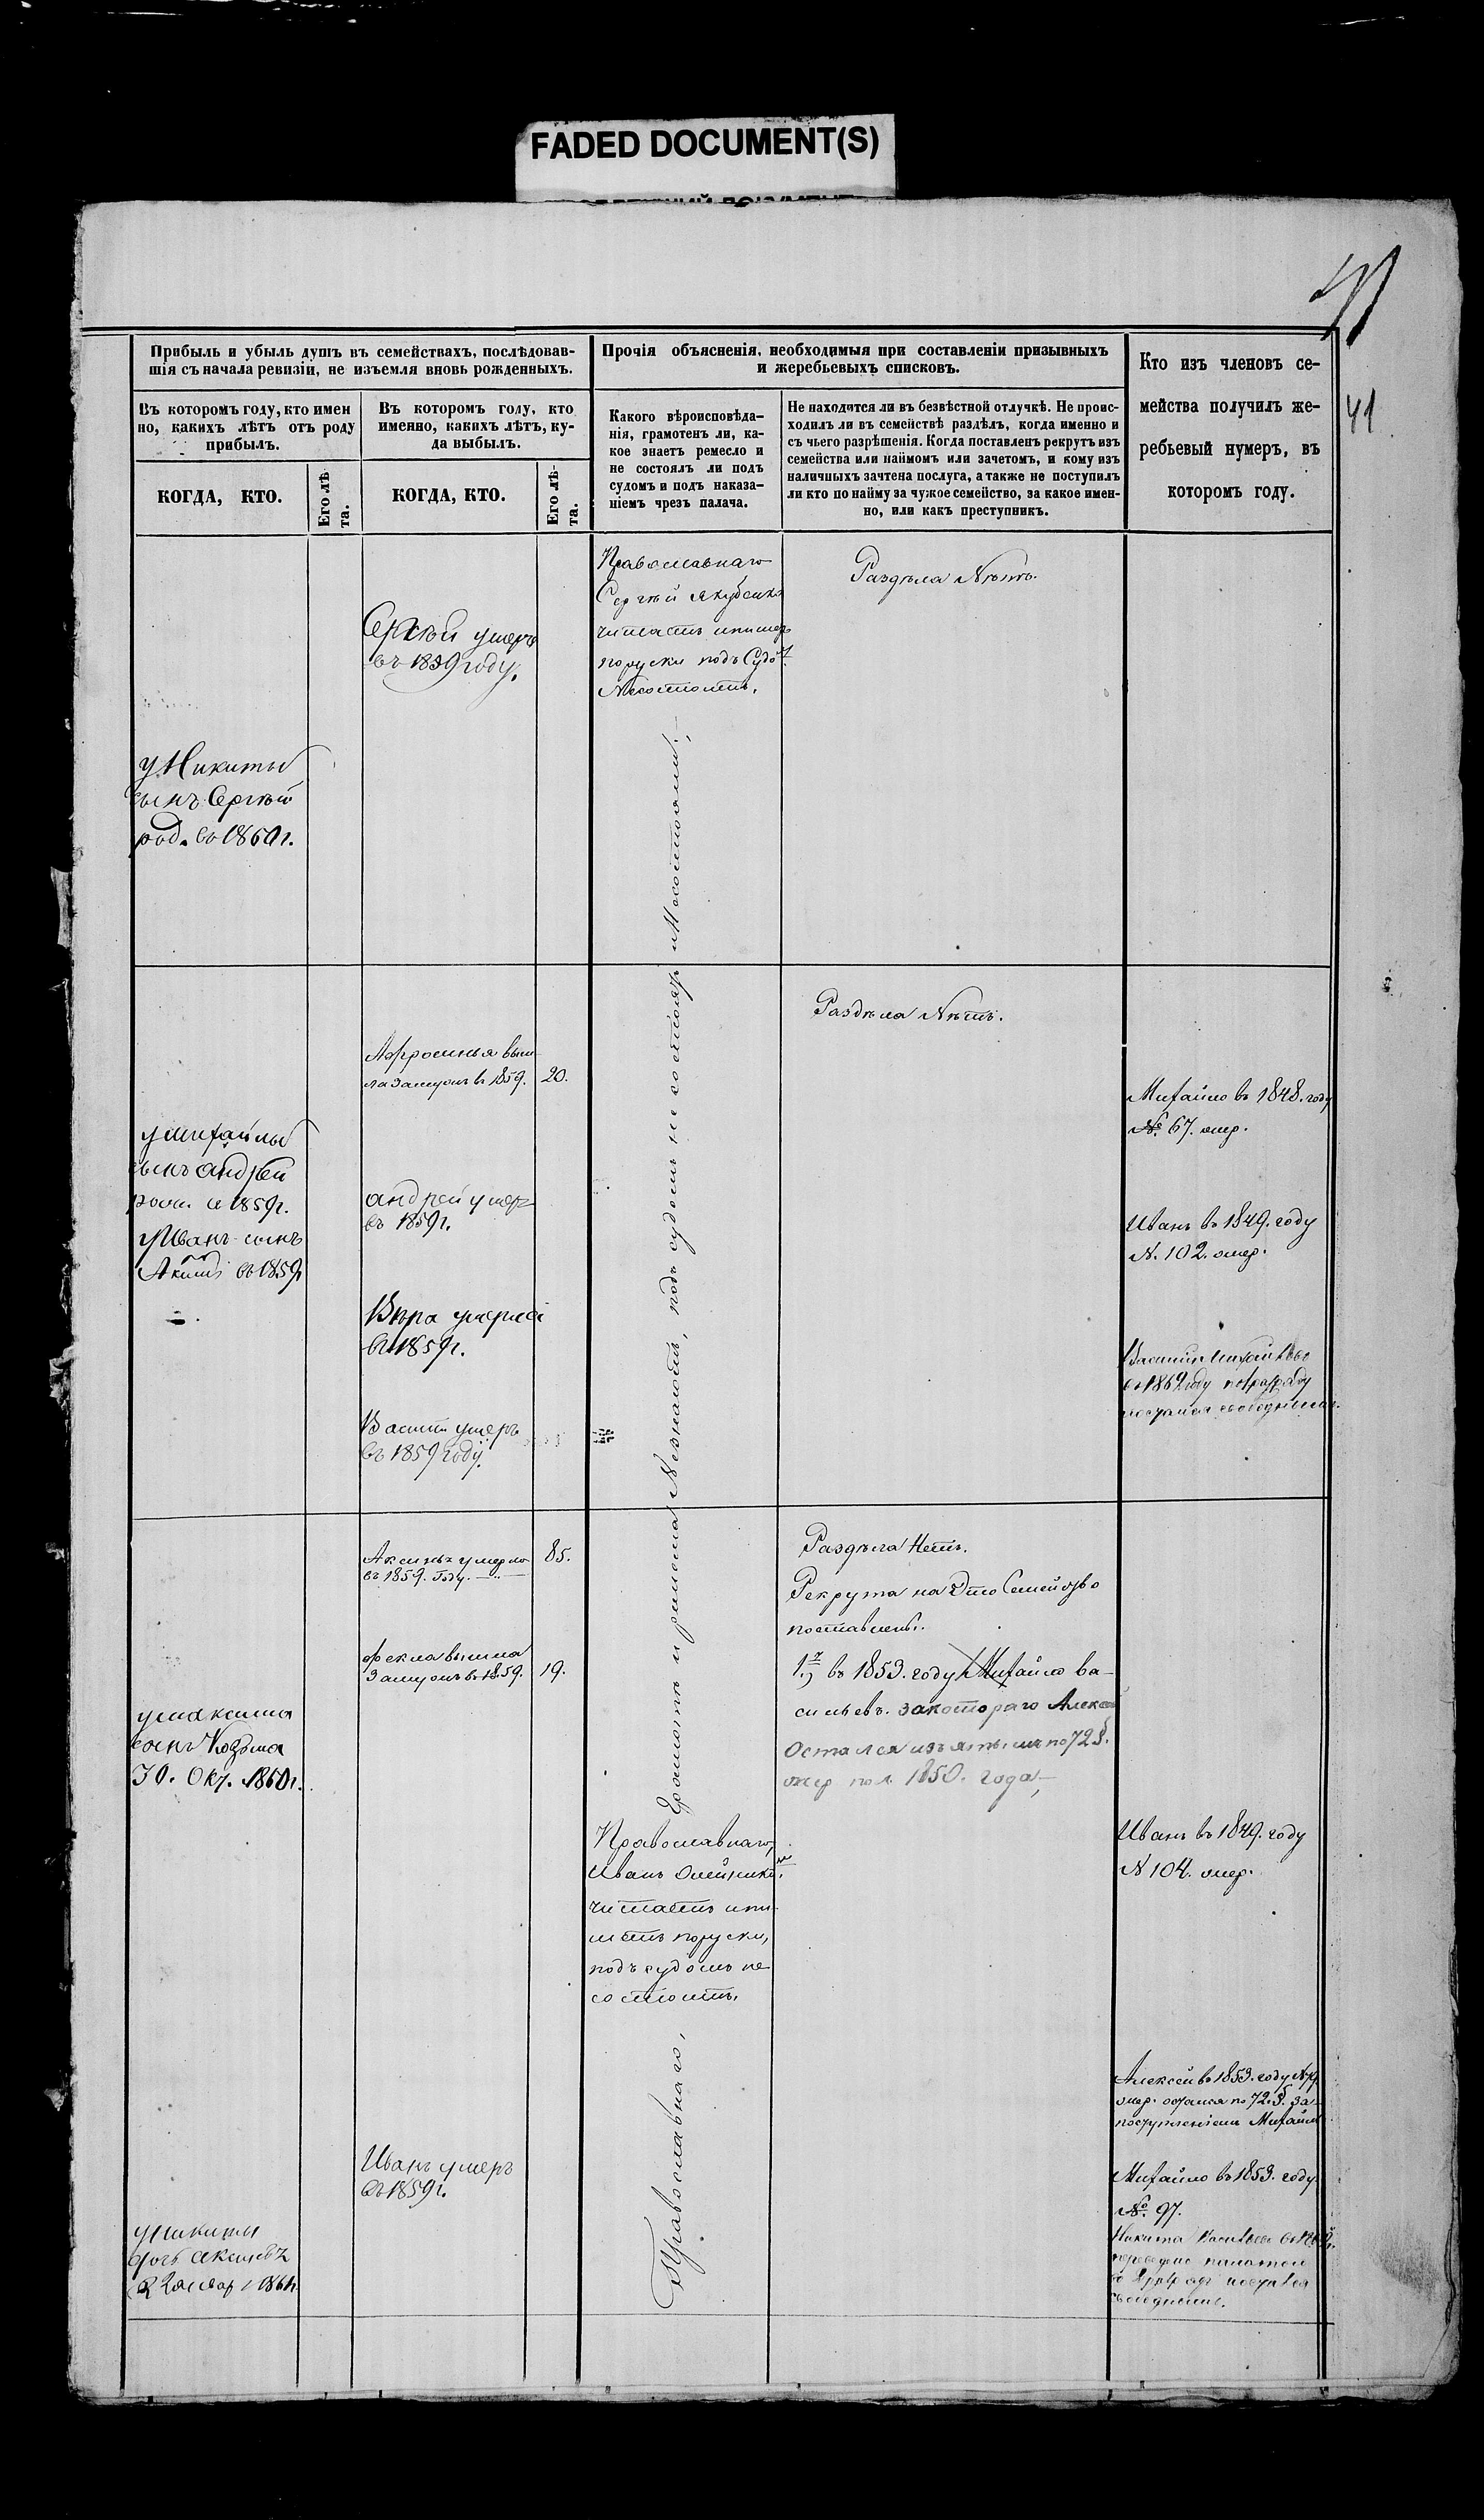 FADED DOCUMENT(S)
41
41
Прибыль и убыль душъ въ семействахъ, послѣдовав-
шія съ начала ревизіи, не изъемля вновь рожденныхъ.
Въ которомъ году, кто имен
но, какихъ лѣтъ отъ роду
прибылъ.
Въ которомъ году, кто
именно, какихъ лѣтъ, ку-
да выбылъ.
КОГДА, КТО.
Его лѣ
та.
КОГДА, КТО.
Его лѣ-
та.
Прочія объясненія, необходимыя при составленіи призывныхъ
и жеребьевыхъ списковъ.
Какого вѣроисповѣда-
нія, грамотенъ ли, ка-
кое знаетъ ремесло и
не состоялъ ли подъ
судомъ и подъ наказа-
ніемъ чрезъ палача.
Не находится ли въ безвѣстной отлучкѣ. Не проис-
ходилъ ли въ семействѣ раздѣлъ, когда именно и
съ чьего разрѣшенія. Когда поставленъ рекрутъ изъ
семейства или наймомъ или зачетомъ, и кому изъ
наличныхъ зачтена послуга, а также не поступилъ
ли кто по найму за чужое семейство, за какое имен-
но, или какъ преступникъ.
Кто изъ членовъ се-
мейства получилъ же-
ребьевый нумеръ, въ
которомъ году.
Православнаго
Сергѣй Якубенко
читаетъ и пишетъ
поруски подъ Судом
Несостоитъ.
Раздѣла Нѣтъ.
Сергѣй умеръ
въ 1859 году.
У Никиты
сынъ Сергѣй
род. въ 1860 г.
Раздѣла Нѣтъ.
Афросинья выш
ла замужъ в 1859. 20.
у михайлы
сынъ андрей
в 1859 г.
У Иванъ сынъ
Акимъ въ 1859
андрей умеръ
въ 1859 г.
Вѣра умерла
въ 1859 г.
Васил умеръ
въ 1859 году.
Михайло въ 1848. году
№. 67. жер.
Иванъ въ 1849. году
N. 102. жер.
въ 1862 году
Православнаго,
Грамотѣ и ремесла Незнаютъ, подъ судомъ не состояр и Несостояли;—
Аксинья умерла 85.
въ 1859. году.
Фекла вышла
Замужъ въ 1859. 19.
Раздѣла Нетъ.
Рекрута на Это Семейство
поставлены.
1.й въ 1853. году Михайло ва-
сильевъ. за котораго Алексѣй
Остался изъятымъ по 72 §.
жер. пол. 1850. года
у максима
сынъ Козьма
30. Окт. 1860 г.
Православнаго,
Иванъ Олейник
читаетъ и пи-
шетъ поруски,
подъ судомъ не
состоитъ.
Иванъ въ 1849. году
N 104. жер.
Алексей въ 1853. году
жер. остался по 72. §. за
поступленіемъ Михайла
Иванъ умеръ
въ 1859 г.
Михайло въ 1853. году
№. 97.
у никиты
дочь